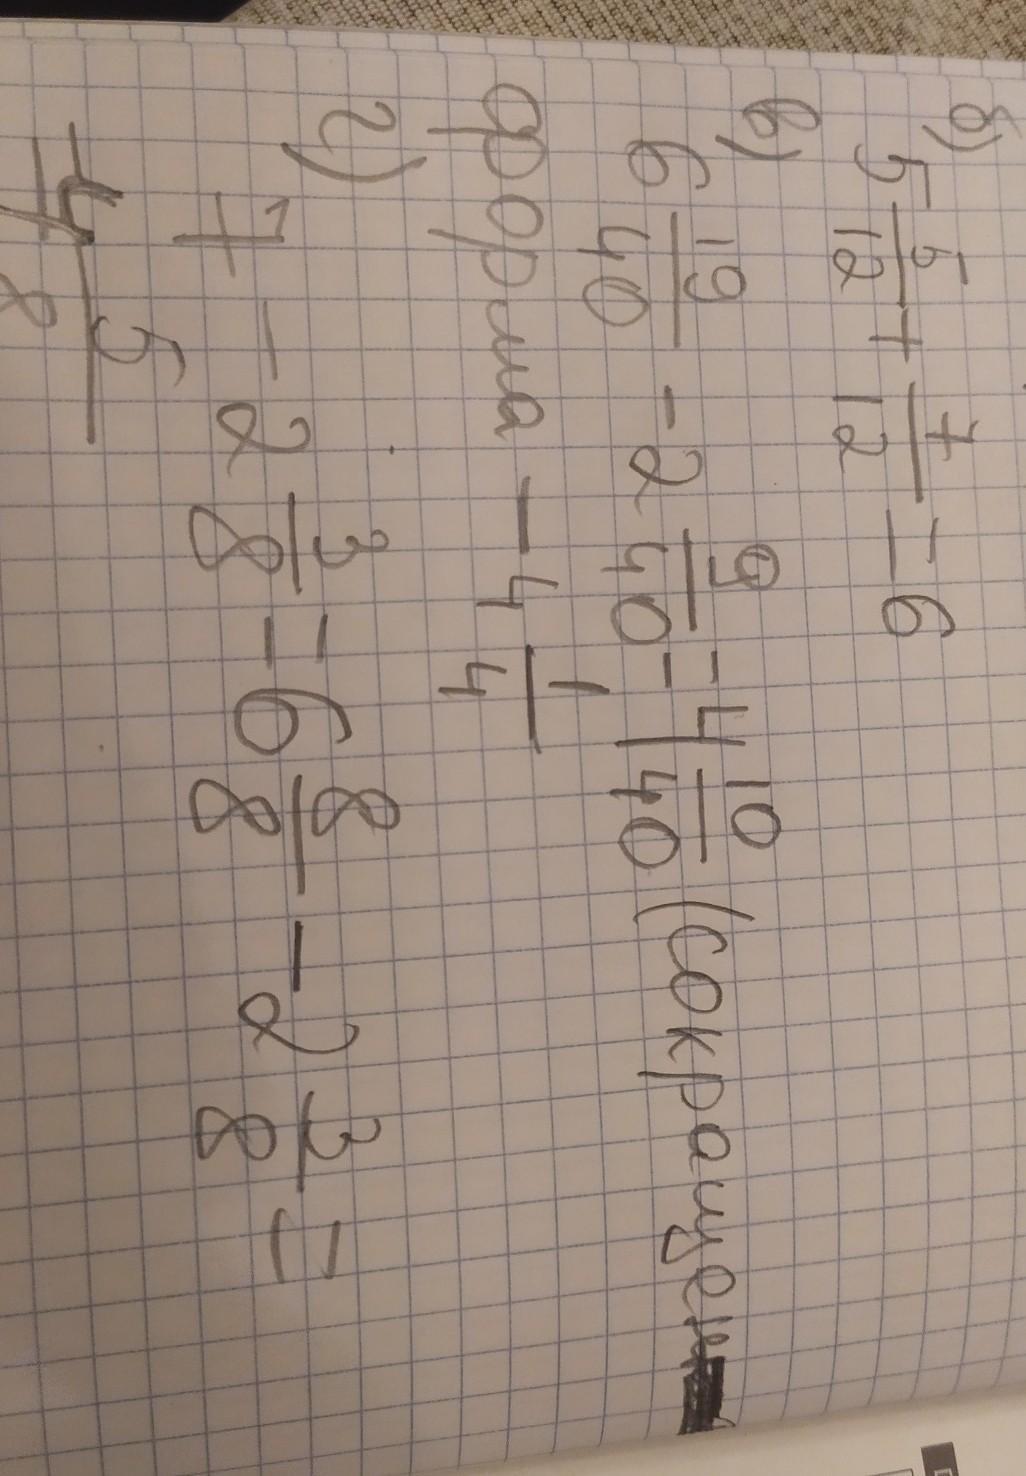 б) 5 5/12 + 7/12 = 6
в) 6 19/40 - 2 9/40 = 4 10/40 (сокращен
форма - 4 1/4
г) 7 - 2 3/8 = 6 8/8 - 2 3/8 =
= 4 5/8